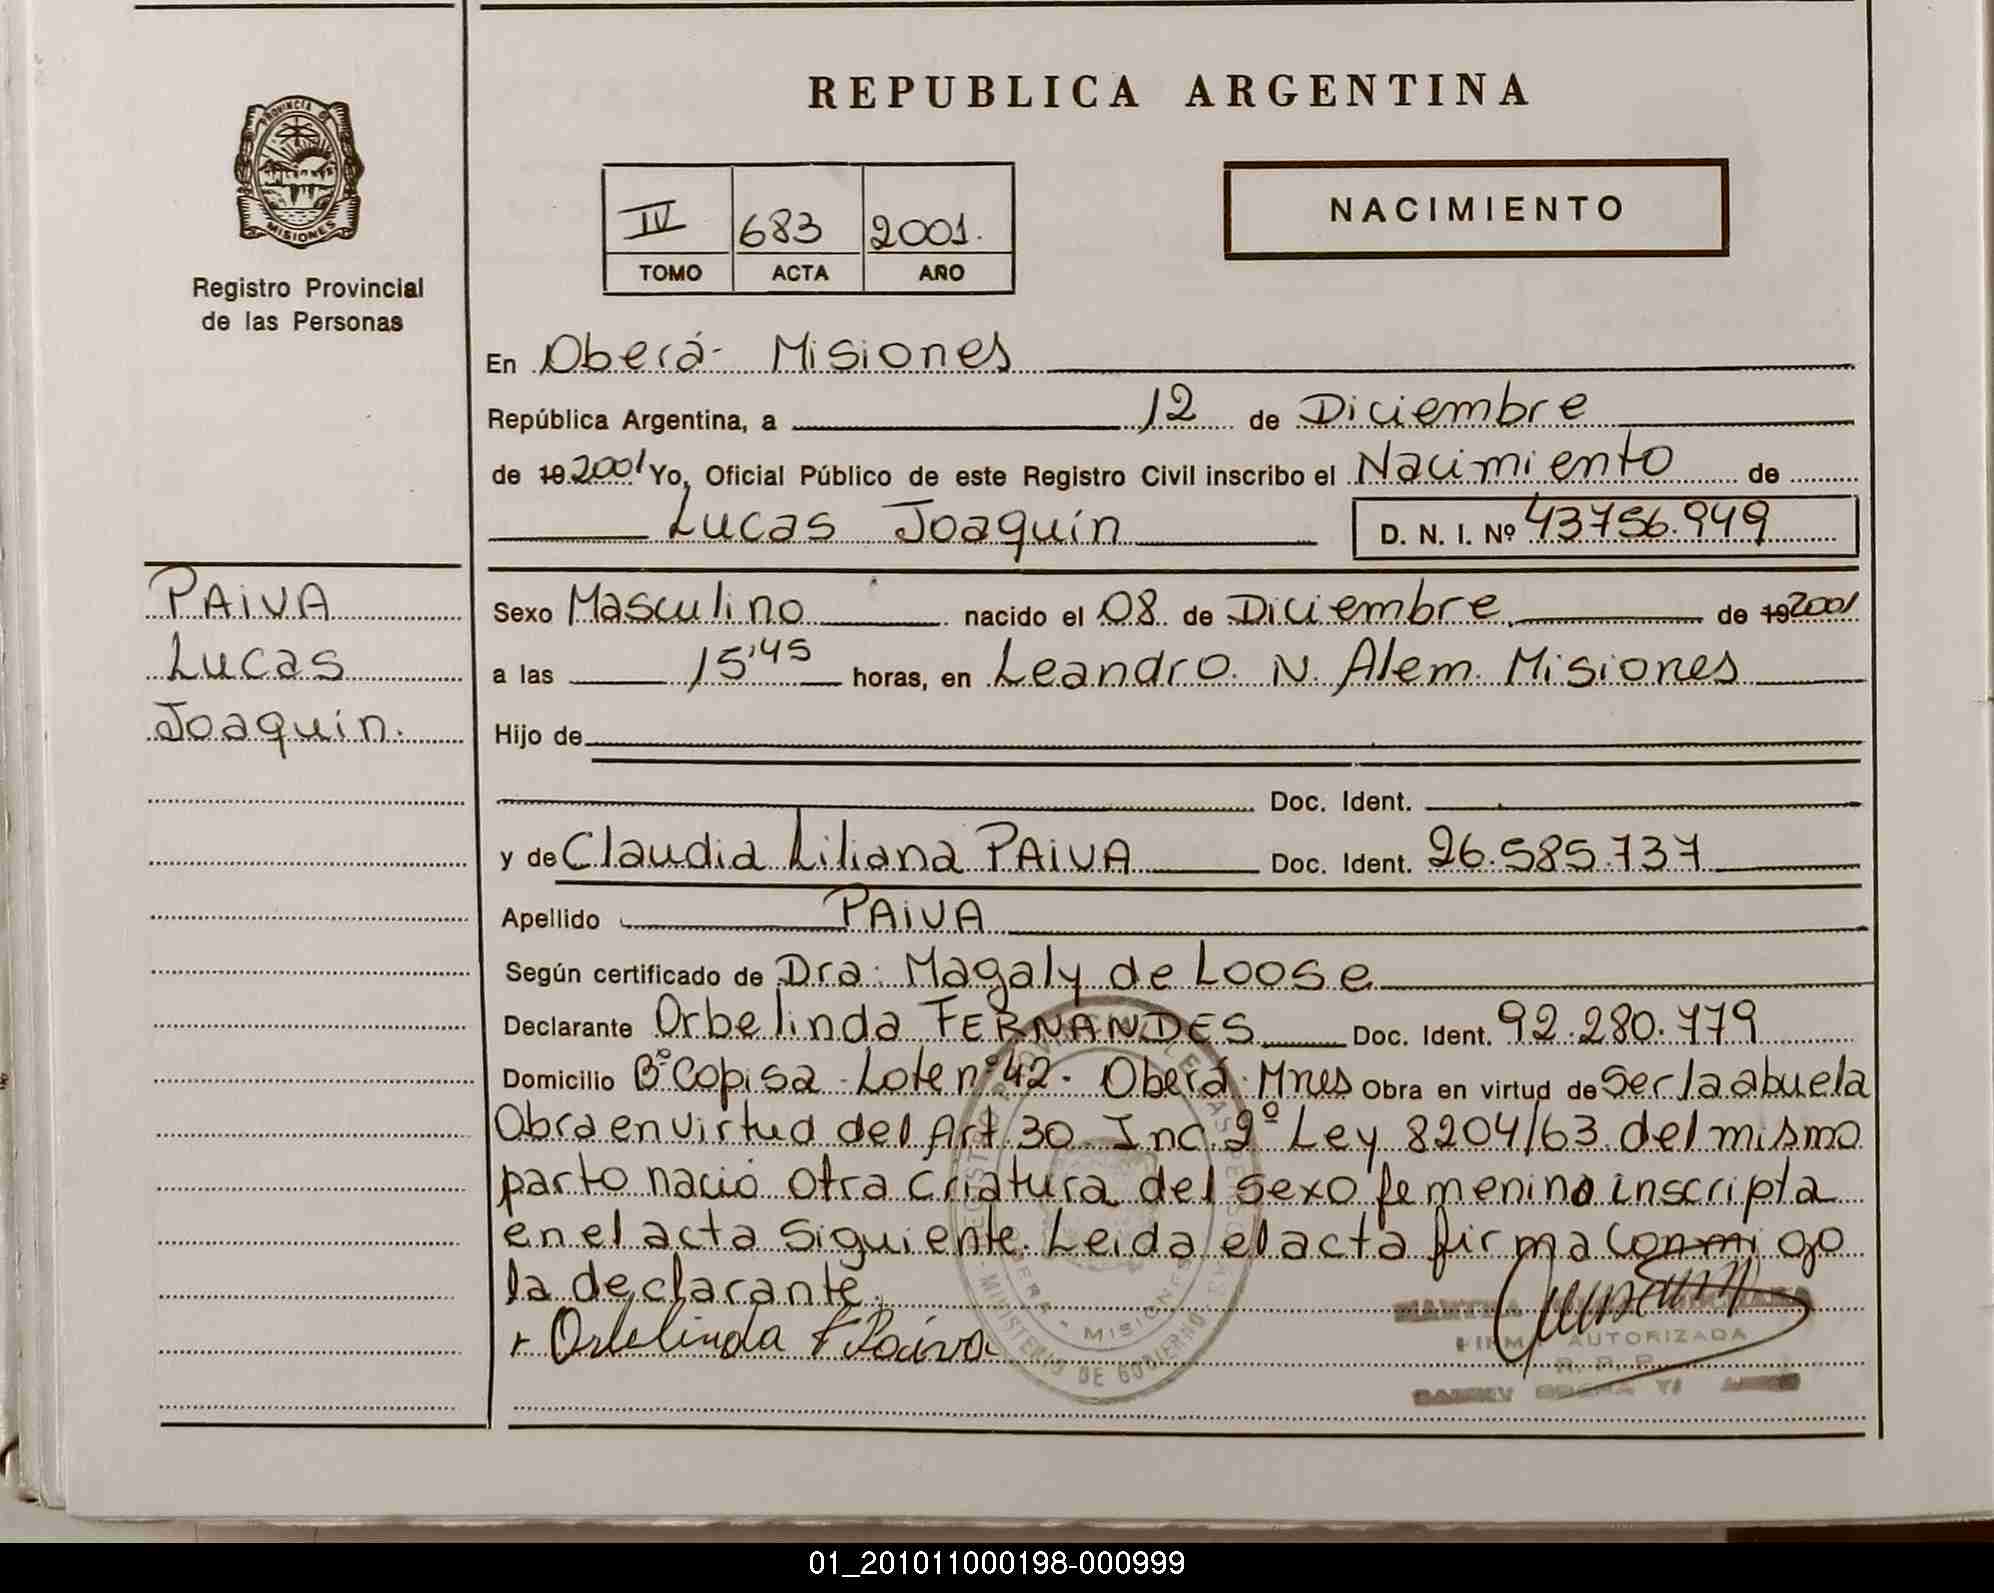 REPUBLICA ARGENTINA
PROVINCIA DE
MISIONES
Registro Provincial
de las Personas
IV 683 2001.
TOMO ACTA AÑO
NACIMIENTO
En Oberá- Misiones
República Argentina, a 12 de Diciembre
de 19 2001 Yo, Oficial Público de este Registro Civil inscribo el Nacimiento de
Lucas Joaquín D. N. I. Nº 43756.949
PAIVA
Lucas
Joaquín.
Sexo Masculino nacido el 08 de Diciembre de 19 2001
a las 15'45 horas, en Leandro. N. Alem. Misiones
Hijo de
Doc. Ident.
y de Claudia Liliana PAIVA Doc. Ident. 26.585.737
Apellido PAIVA
Según certificado de Dra: Magaly de Loose
Declarante Orbelinda FERNANDES Doc. Ident. 92.280.779
Domicilio Bº Copisa - Lote nº 42- Oberá- Mnes Obra en virtud de Ser la abuela
Obra en virtud del Art. 30 Inc. 2º Ley 8204/63. del mismo
parto nació otra criatura del sexo femenino inscripta
en el acta siguiente. Leida el acta firma conmigo
la declarante.
Orbelinda F Paiva
MISIONES
MINISTERIO DE GOBIERNO
FIRMA AUTORIZADA
R. P. P.
01_201011000198-000999